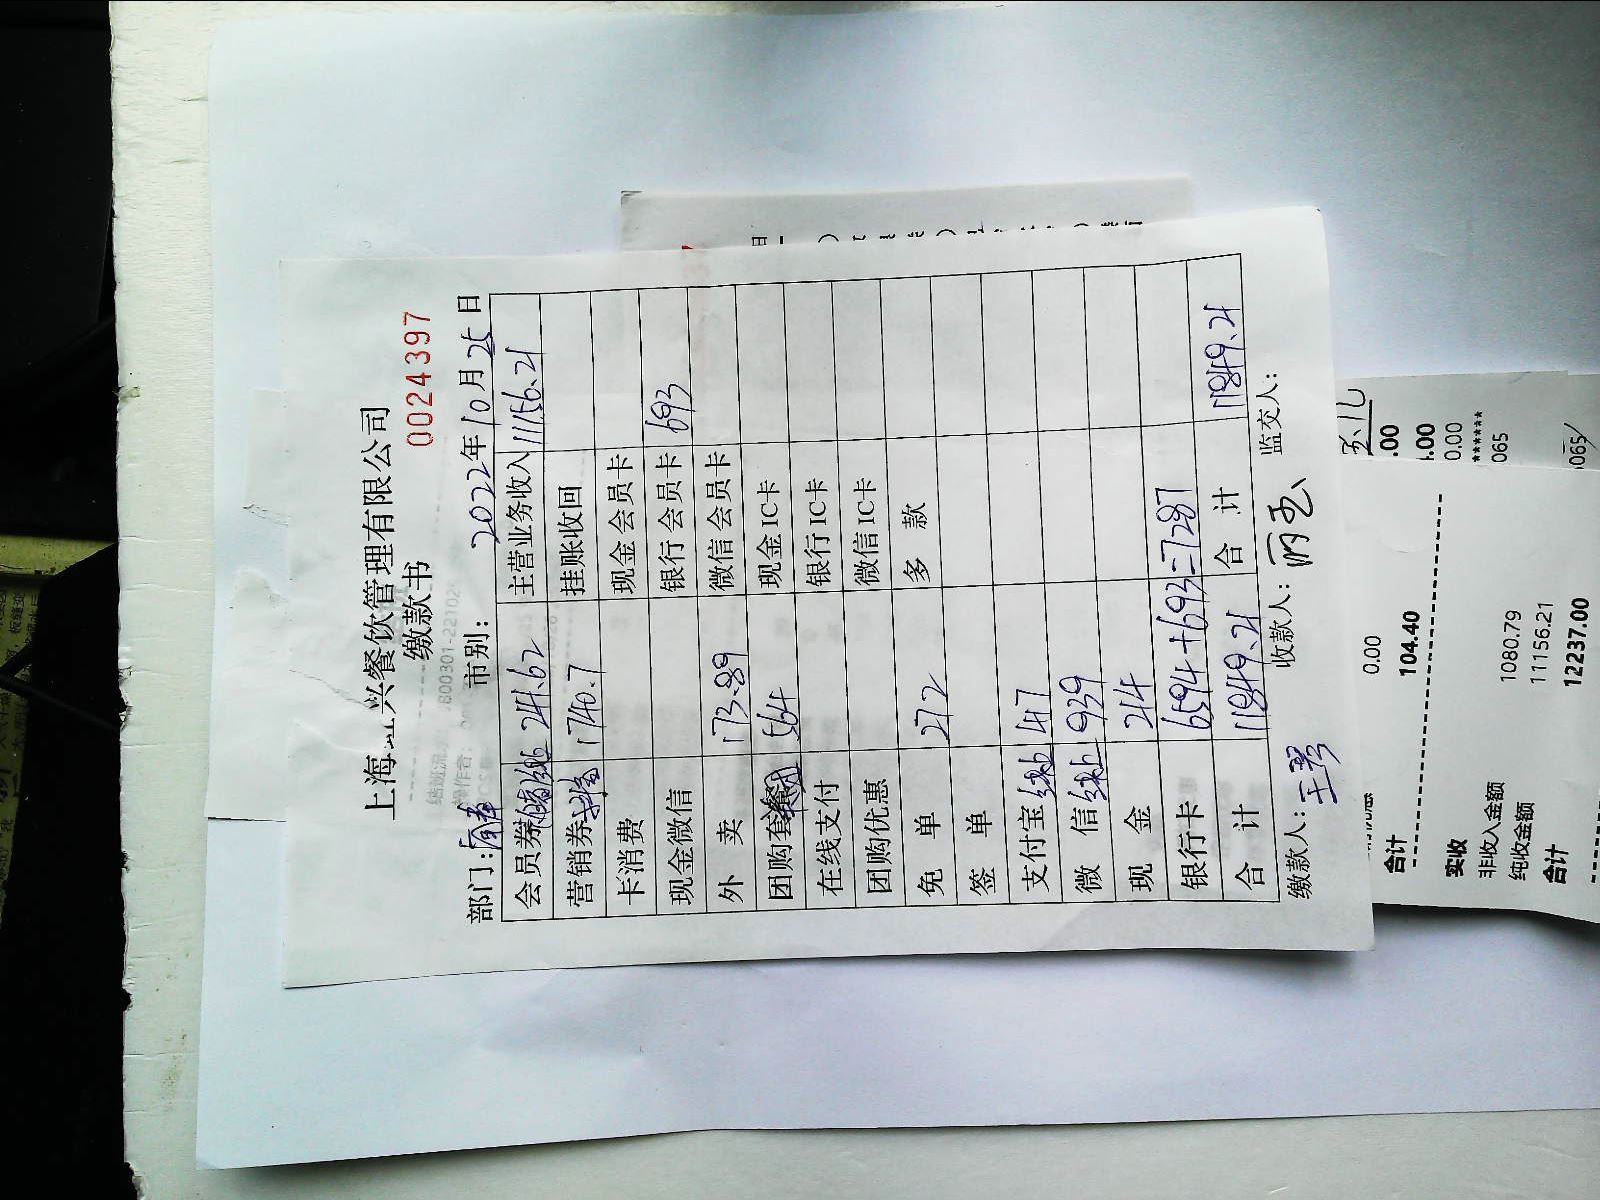 上海 兴餐饮管理有限公司
缴款书 0024397
部门: 市别: 2022年10月25日
会员券 241.62 主营业务收入 11156.21
营销券 1740.7 挂账收回
卡消费 现金会员卡
现金微信 银行会员卡 693
外 卖 173.89 微信会员卡
团购套餐 564 现金IC卡
在线支付 银行IC卡
团购优惠 微信IC卡
免 单 272 多 款
签 单
支付宝 线上 47
微 信 线上 939
现 金 214
银行卡 6594+693=7287
合 计 11849.21 合 计 11849.21
缴款人: 王琴 收款人: 丽 监交人:
0.00
合计 104.40
实收
非收入金额 1080.79
纯收金额 11156.21
合计 12237.00
.00
.00
0.00
******
065
065